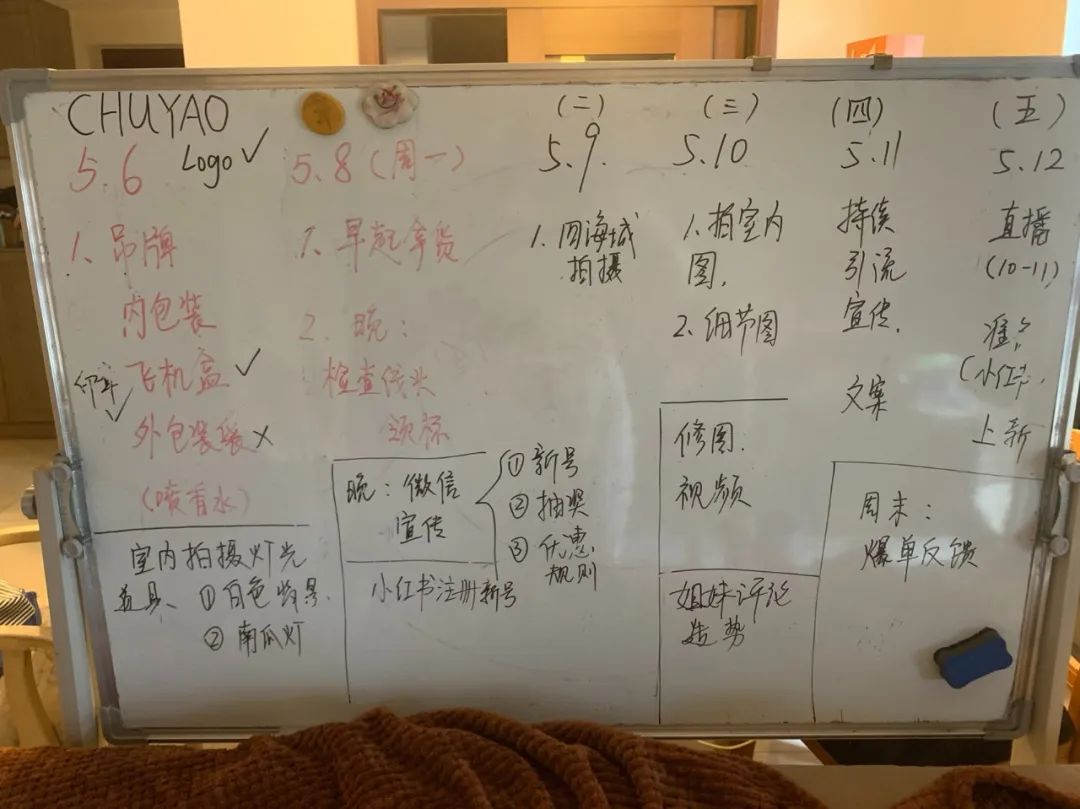 CHUYAO
5.6 Logo ✓
1. 吊牌
内包装
飞机盒 ✓
外包装袋 ×
(喷香水)
室内拍摄灯光
道具、① 白色背景.
② 南瓜灯
5.8 (周一)
1. 早起拿货
2. 晚:
检查线头
领标
晚: 微信
宣传
① 新号
② 抽奖
③ 优惠
规则
小红书注册新号
(二)
5.9
1. 四海城
拍摄
(三)
5.10
1. 拍室内
图.
2. 细节图
修图.
视频
姐妹评论
造势
(四)
5.11
持续
引流
宣传.
文案
(五)
5.12
直播
(10-11)
准备
(小红书.
上新
周末:
爆单反馈